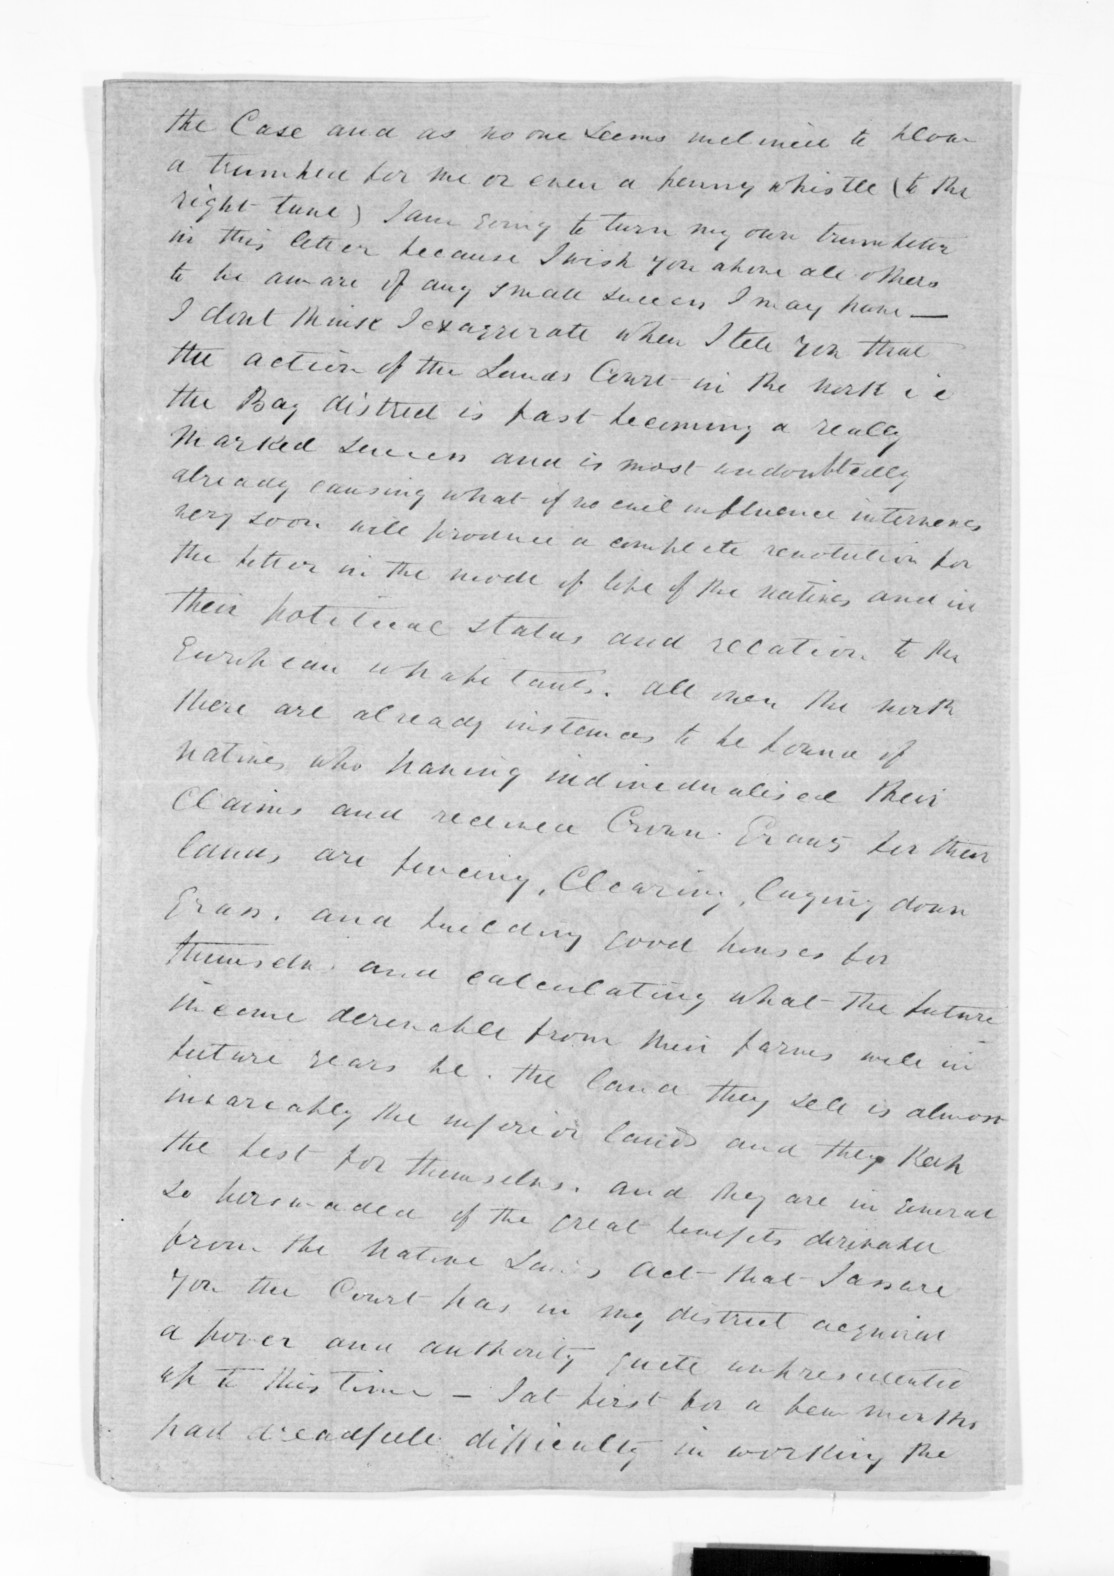 the Case and as no one seems inclined to blow
a trumpet for me or even a penny whistle (to the
right tune) I am going to turn my own trumpeter
in this letter because I wish you above all others
to be aware of any small success I may have —
I dont think I exaggerate when I tell you that
the action of the Lands Court in the north i e
the Bay district is fast becoming a really
marked success and is most undoubtedly
already causing what if no evil influence intervenes
very soon will produce a complete revolution for
the better in the mode of life of the natives and in
their political status and relation to the
European inhabitants. all over the north
there are already instances to be found of
natives who having individualised their
Claims and received Crown Grants for their
lands are fencing, Clearing, laying down
Grass. and building good houses for
themselvs. and calculating what the future
income derivable from their farms will in
future years be. the land they sell is almost
invareably the inferior lands and they keep
the best for themselvs. and they are in general
so perswaded of the great benefits derivable
from the Native Lands Act that I assure
you the Court has in my district acquired
a power and authority quite unpresidented
up to this time — I at first for a few months
had dreadfull difficulty in working the